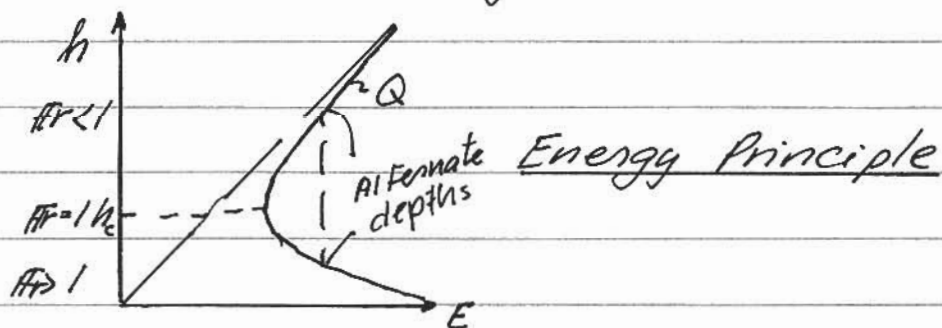 h
Q
Fr<1
Alternate
depths
Energy Principle
Fr=1 hc
Fr>1
E